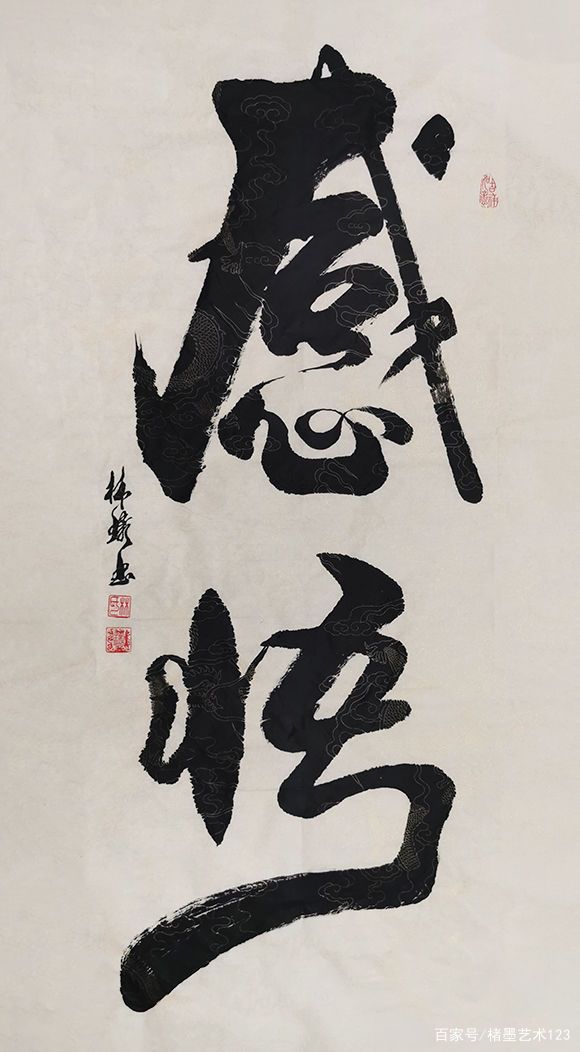 感悟
林
书
百家号/楮墨艺术123